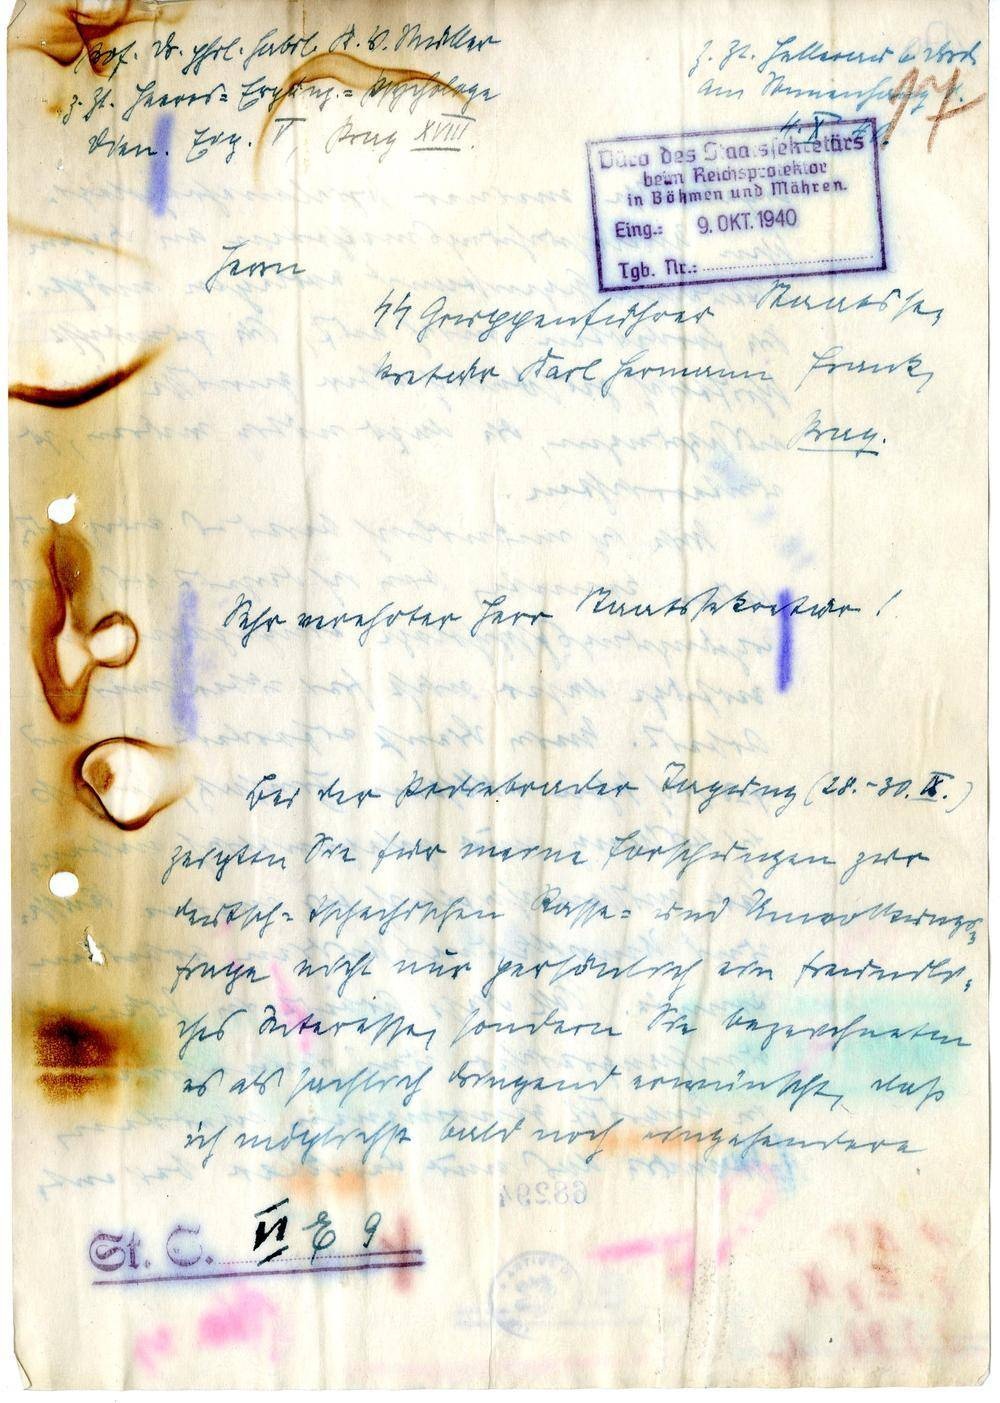 Prof. Dr. phil. habil. K. V. Müller
z. Zt. Heeres-Ergänz.-Psychologe
Wien. Erg. V, Prag XVIII.
z. Zt. Hellerau b. Drsd.
Am Sonnenhang
4. X. 40.
17
Büro des Staatssekretärs
beim Reichsprotektor
in Böhmen und Mähren.
Eing.: 9. OKT. 1940
Tgb. Nr.:
Herrn
SS Gruppenführer Staatsse-
kretär Karl Hermann Frank,
Prag.
Sehr verehrter Herr Staatssekretär!
Bei der Podiebrader Tagung (28.-30. IX.)
zeigten Sie für meine Forschungen zur
deutsch-tschechischen Rasse- und Umvolkungs-
frage nicht nur persönlich ein freundli-
ches Interesse, sondern Sie bezeichneten
es als sachlich dringend erwünscht, daß
ich möglichst bald noch eingehendere
68294
St. S. VI E 9